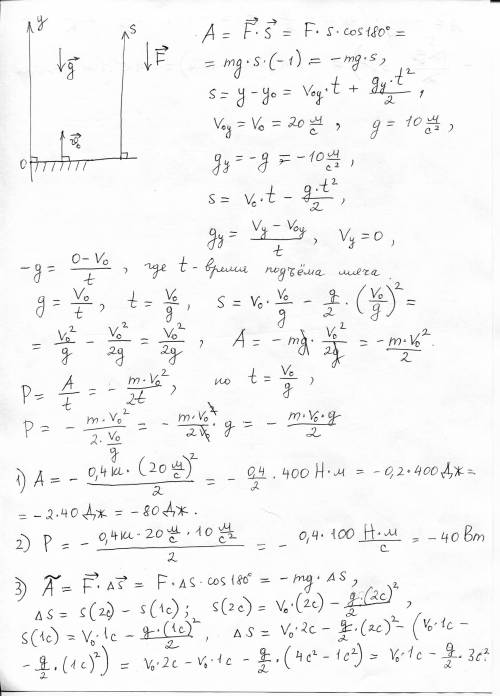 y
s
g⃗
F⃗
v⃗₀
0
A = F⃗·s⃗ = F·s·cos180° =
= mg·s·(-1) = -mg·s,
s = y-y₀ = v₀y·t + gy·t²/2,
v₀y = v₀ = 20 м/с, g = 10 м/с²,
gy = -g = -10 м/с²,
s = v₀·t - g·t²/2,
gy = (vy - v₀y)/t, vy = 0,
-g = (0-v₀)/t, где t - время подъёма мяча.
g = v₀/t, t = v₀/g, s = v₀·v₀/g - g/2·(v₀/g)² =
= v₀²/g - v₀²/2g = v₀²/2g, A = -mg·v₀²/2g = -m·v₀²/2.
P = A/t = -m·v₀²/2t, но t = v₀/g,
P = -m·v₀²/(2·v₀/g) = -m·v₀²/2v₀·g = -m·v₀·g/2
1) A = -0,4кг·(20 м/с)²/2 = -0,4/2·400 Н·м = -0,2·400 Дж =
= -2·40 Дж = -80 Дж.
2) P = -0,4кг·20 м/с·10 м/с²/2 = -0,4·100 Н·м/с = -40 Вт
3) Ã = F⃗·Δs⃗ = F·Δs·cos180° = -mg·Δs,
Δs = s(2с) - s(1с); s(2с) = v₀·(2с) - g·(2с)²/2,
s(1с) = v₀·1с - g·(1с)²/2, Δs = v₀·2с - g/2·(2с)² - (v₀·1с -
- g/2·(1с)²) = v₀·2с - v₀·1с - g/2·(4с² - 1с²) = v₀·1с - g/2·3с².